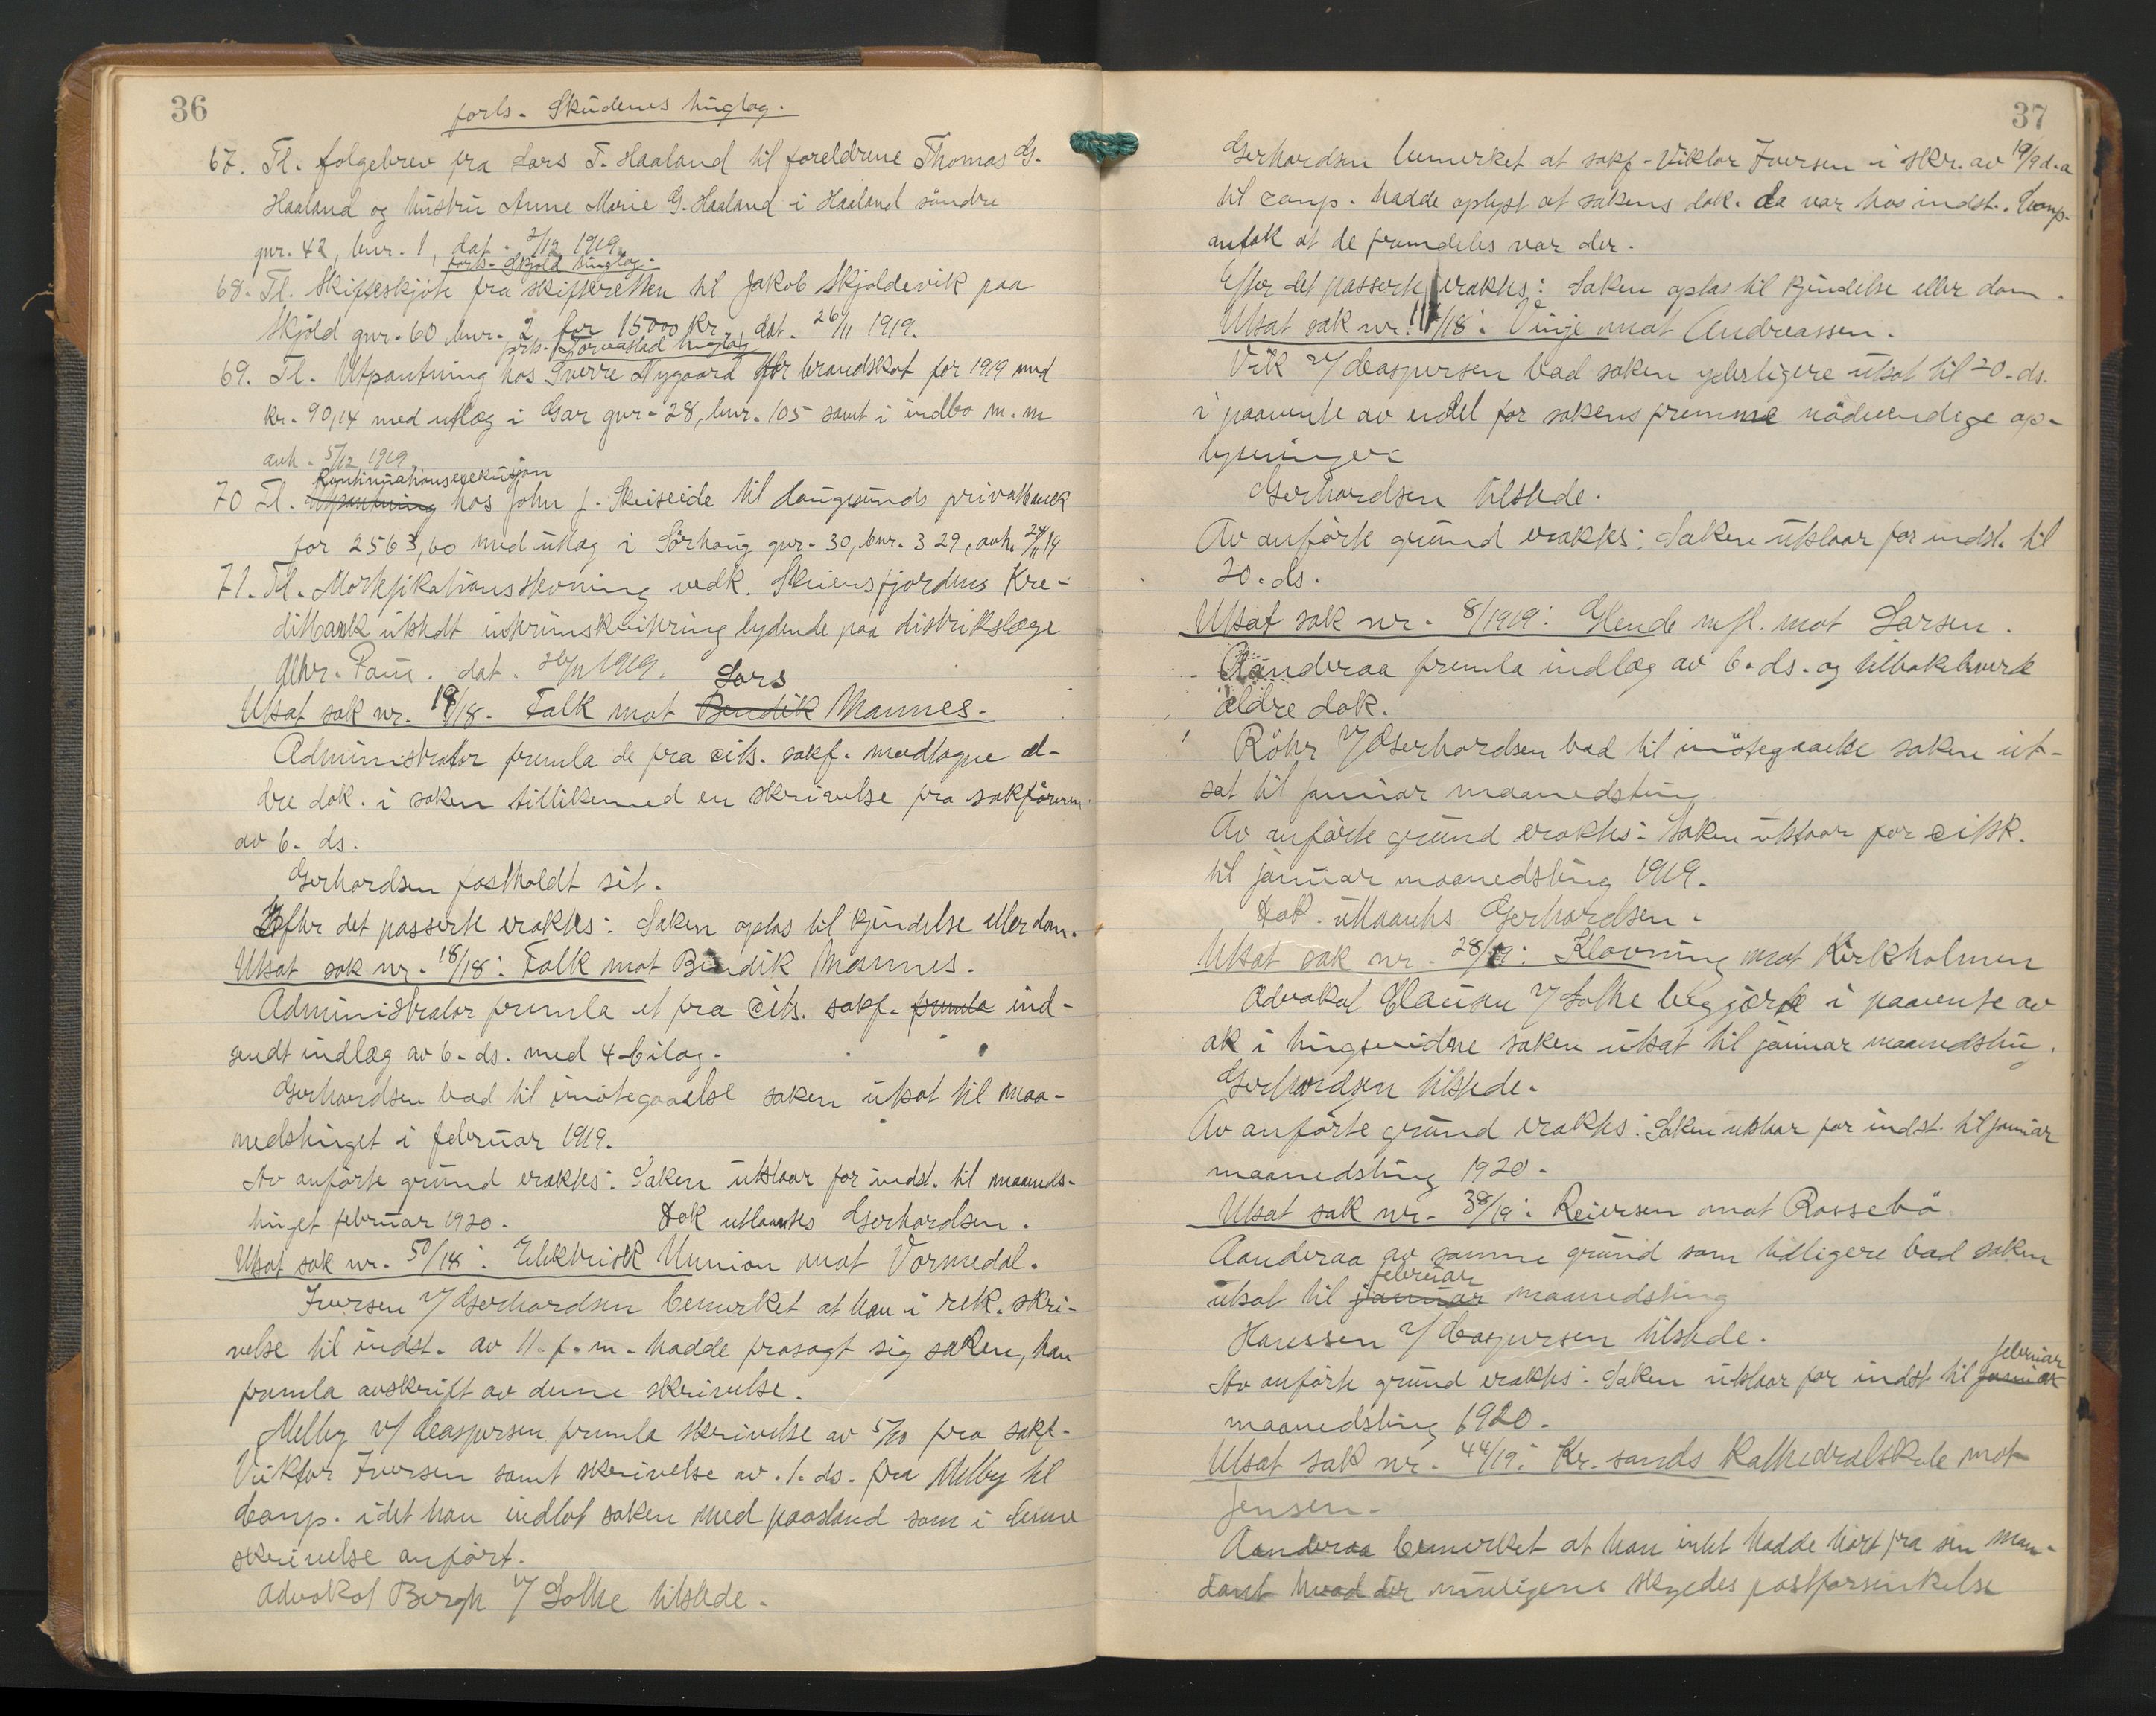 36
forts. Skudenes tinglag.
67. Tl. følgebrev fra Lars T. Haaland til foreldrene Thomas G.
Haaland og hustru Anne Marie G. Haaland i Haaland söndre
gnr. 42, bnr. 1, dat. 2/12 1919.
forts. Skjold tinglag.
68. Tl. Skifteskjöte fra skifteretten til Jakob Skjoldevik paa
Skjold gnr. 60 bnr. 2 for 15000 kr., dat. 26/11 1919.
forts. Torvastad tinglag
69. Tl. Utpantning hos Sverre Nygaard for brandskat for 1919 med
kr. 90,14 med utlæg i Gar gnr. 28, bnr. 105 samt i indbo m.m
avh. 5/12 1919.
Kontinuationsexekution
70 Tl. Utpantning hos John J. Skeiseide til Haugesunds privatbank
for 2563,60 med utlæg i Sörhaug gnr. 30, bnr. 329, avh. 24/11 19
71. Tl. Mortifikationsstevning vedk. Skiensfjordens Kre-
ditbank utstedt interimskvitering lydende paa distriktslæge
Chr. Paus. dat. 26/11 1919.
Lars
Utsat sak nr. 19/18. Falk mot Bendik Mannes.
Administrator fremla de fra cits. sakf. modtagne æl-
dre dok. i saken tillikemed en skrivelse fra sakföreren
av 6. ds.
Gerhardsen fastholdt sit.
Efter det passerte eraktes: Saken optas til kjendelse eller dom.
Utsat sak nr. 18/18: Falk mot Bendik Mannes.
Administrator fremla et fra cits. sakf. fremla ind-
sendt indlæg av 6. ds. med 4 bilag.
Gerhardsen bad til imötegaaelse saken utsat til maa-
nedstinget i februar 1919.
Av anförte grund eraktes: Saken utstaar for indst. til maaneds-
tinget februar 1920. Dok utlaantes Gerhardsen.
Utsat sak nr. 50/18: Elektrisk Unnion mot Vormedal.
Iversen v/ Gerhardsen bemerket at han i rek. skri-
velse til indst. av 11. f.m. hadde frasagt sig saken, han
fremla avskrift av denne skrivelse.
Melby v/ Caspersen fremla skrivelse av 5/10 fra sakf.
Viktor Iversen samt skrivelse av 1. ds. fra Melby til
Comp. idet han indlot saken med paastand som i denne
skrivelse anfört.
Advokat Bergh v/ Lothe tilstede.
37
Gerhardsen bemerket at sakf. Viktor Iversen i skr. av 19/9 d.a
til comp. hadde oplyst at sakens dok. da var hos indst. Comp.
antok at de fremdeles var der.
Efter det passerte eraktes: Saken optas til kjendelse eller dom.
Utsat sak nr. 11/18: Vinje mot Andreassen.
Vik v/ Caspersen bad saken yderligere utsat til 20. ds.
i paavente av endel for sakens fremme nödvendige op-
lysninger
Gerhardsen tilstede.
Av anförte grund eraktes: Saken utstaar for indst. til
20. ds.
Utsat sak nr. 8/1919: Glende mfl. mot Larsen.
Aanderaa fremla indlæg av 6. ds. og tilbakeleverte
ældre dok.
Röhr v/ Gerhardsen bad til imötegaaelse saken ut-
sat til januar maanedsting
Av anförte grund eraktes: Saken utstaar for citst.
til januar maanedsting 1919.
Dok. utlaantes Gerhardsen.
Utsat sak nr. 28/19: Klovning mot Kirkholmen
Advokat Clausen v/ Lothe begjærte i paavente av
ak i tingsvidne saken utsat til januar maanedsting.
Gerhardsen tilstede.
Av anförte grund eraktes: Saken utstaar for indst. til januar
maanedsting 1920.
Utsat sak nr. 38/19: Reiersen mot Rossebö.
Aanderaa av samme grund som tidligere bad saken
februar
utsat til januar maanedsting
Hanssen v/ Caspersen tilstede.
februar
Av anförte grund eraktes: Saken utstaar for indst. til januar
maanedsting 1920.
Utsat sak nr. 44/19: Kr. sands Kathedralskole mot
Jensen.
Aanderaa bemerket at han intet hadde hört fra sin man-
dant hvad der muligens skyldes postforsinkelse